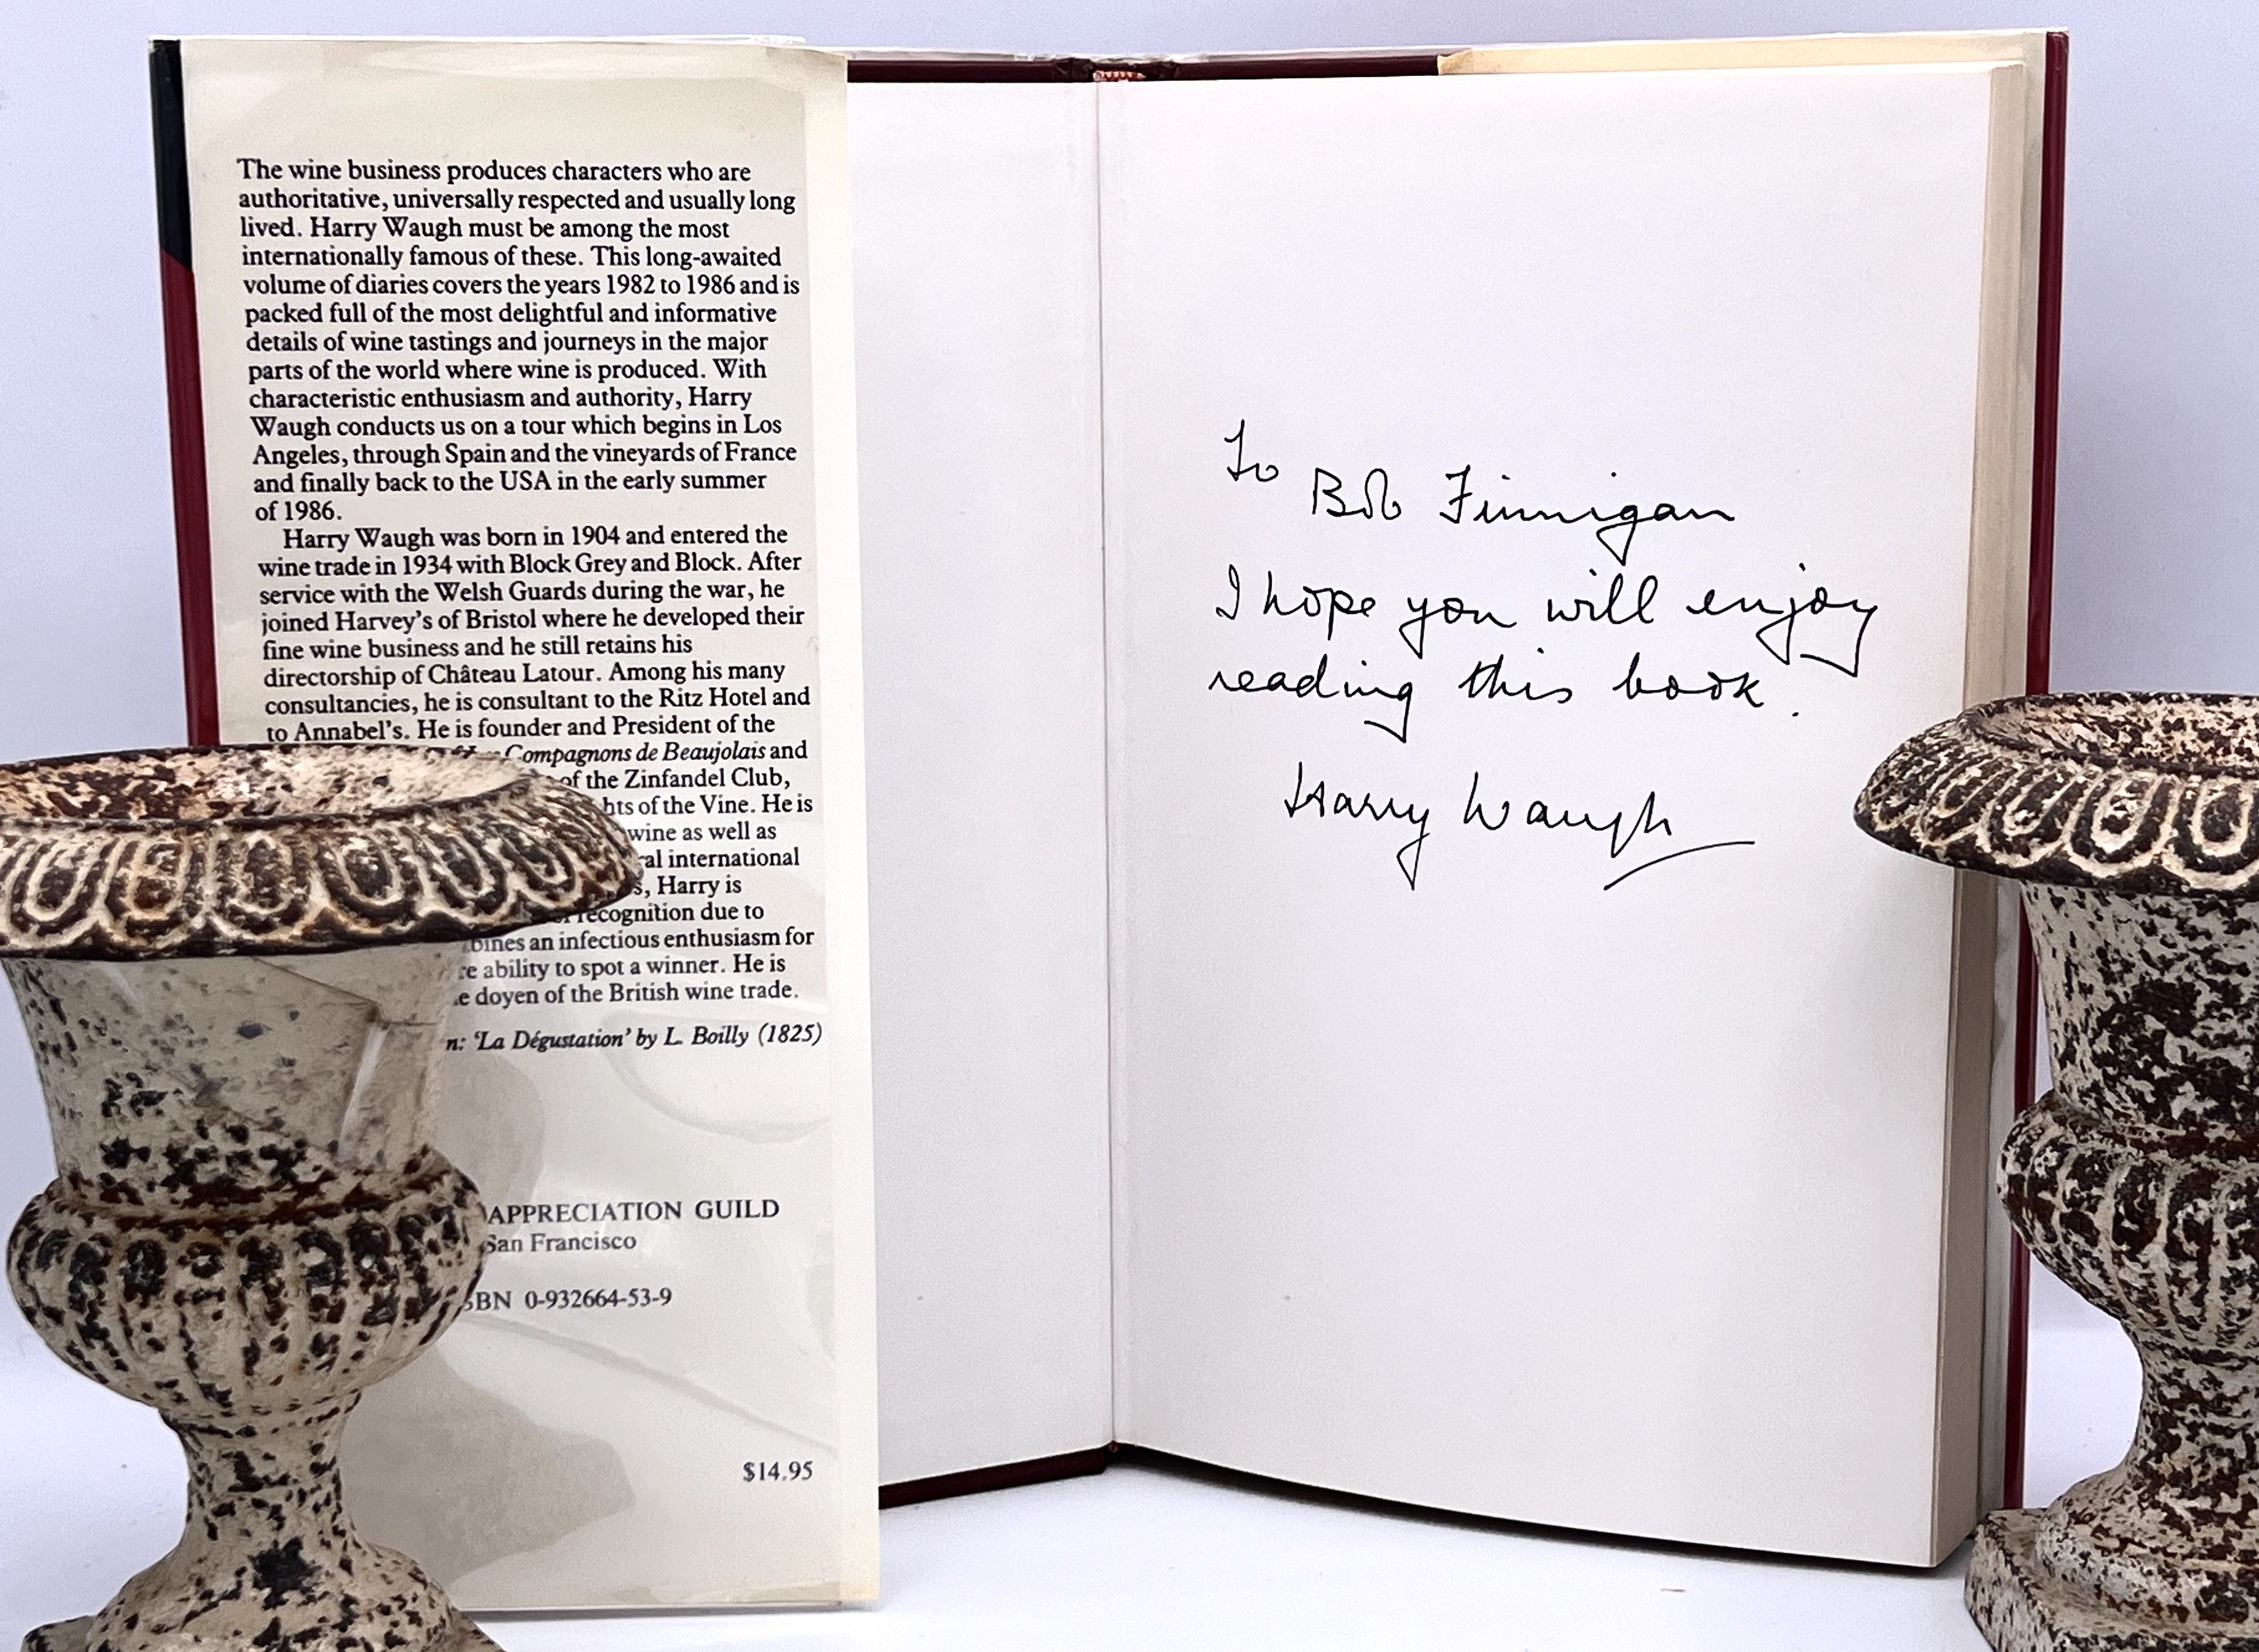 The wine business produces characters who are
authoritative, universally respected and usually long
lived. Harry Waugh must be among the most
internationally famous of these. This long-awaited
volume of diaries covers the years 1982 to 1986 and is
packed full of the most delightful and informative
details of wine tastings and journeys in the major
parts of the world where wine is produced. With
characteristic enthusiasm and authority, Harry
Waugh conducts us on a tour which begins in Los
Angeles, through Spain and the vineyards of France
and finally back to the USA in the early summer
of 1986.
Harry Waugh was born in 1904 and entered the
wine trade in 1934 with Block Grey and Block. After
service with the Welsh Guards during the war, he
joined Harvey's of Bristol where he developed their
fine wine business and he still retains his
directorship of Château Latour. Among his many
consultancies, he is consultant to the Ritz Hotel and
to Annabel's. He is founder and President of the
Compagnons de Beaujolais and
of the Zinfandel Club,
of the Vine. He is
wine as well as
international
Harry is
recognition due to
an infectious enthusiasm for
ability to spot a winner. He is
doyen of the British wine trade.
'La Dégustation' by L. Boilly (1825)
APPRECIATION GUILD
San Francisco
0-932664-53-9
$14.95
To
Bob Finnigan
I hope you will enjoy
reading this book.
Harry Waugh